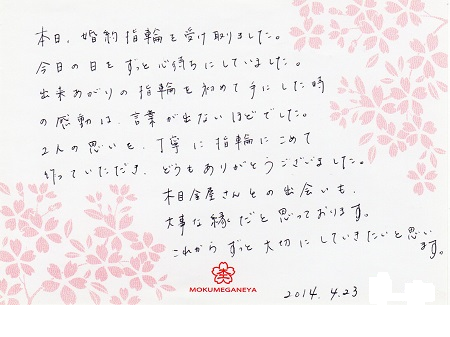 本日、婚約指輪を受け取りました。
今日の日をずっと心待ちにしていました。
出来あがりの指輪を初めて手にした時
の感動は、言葉が出ないほどでした。
2人の思いを、丁寧に指輪にこめて
作っていただき、どうもありがとうございました。
杢目金屋さんとの出会いも、
大事な縁だと思っております。
これからずっと大切にしていきたいと思い
ます。
MOKUMEGANEYA
2014. 4. 23